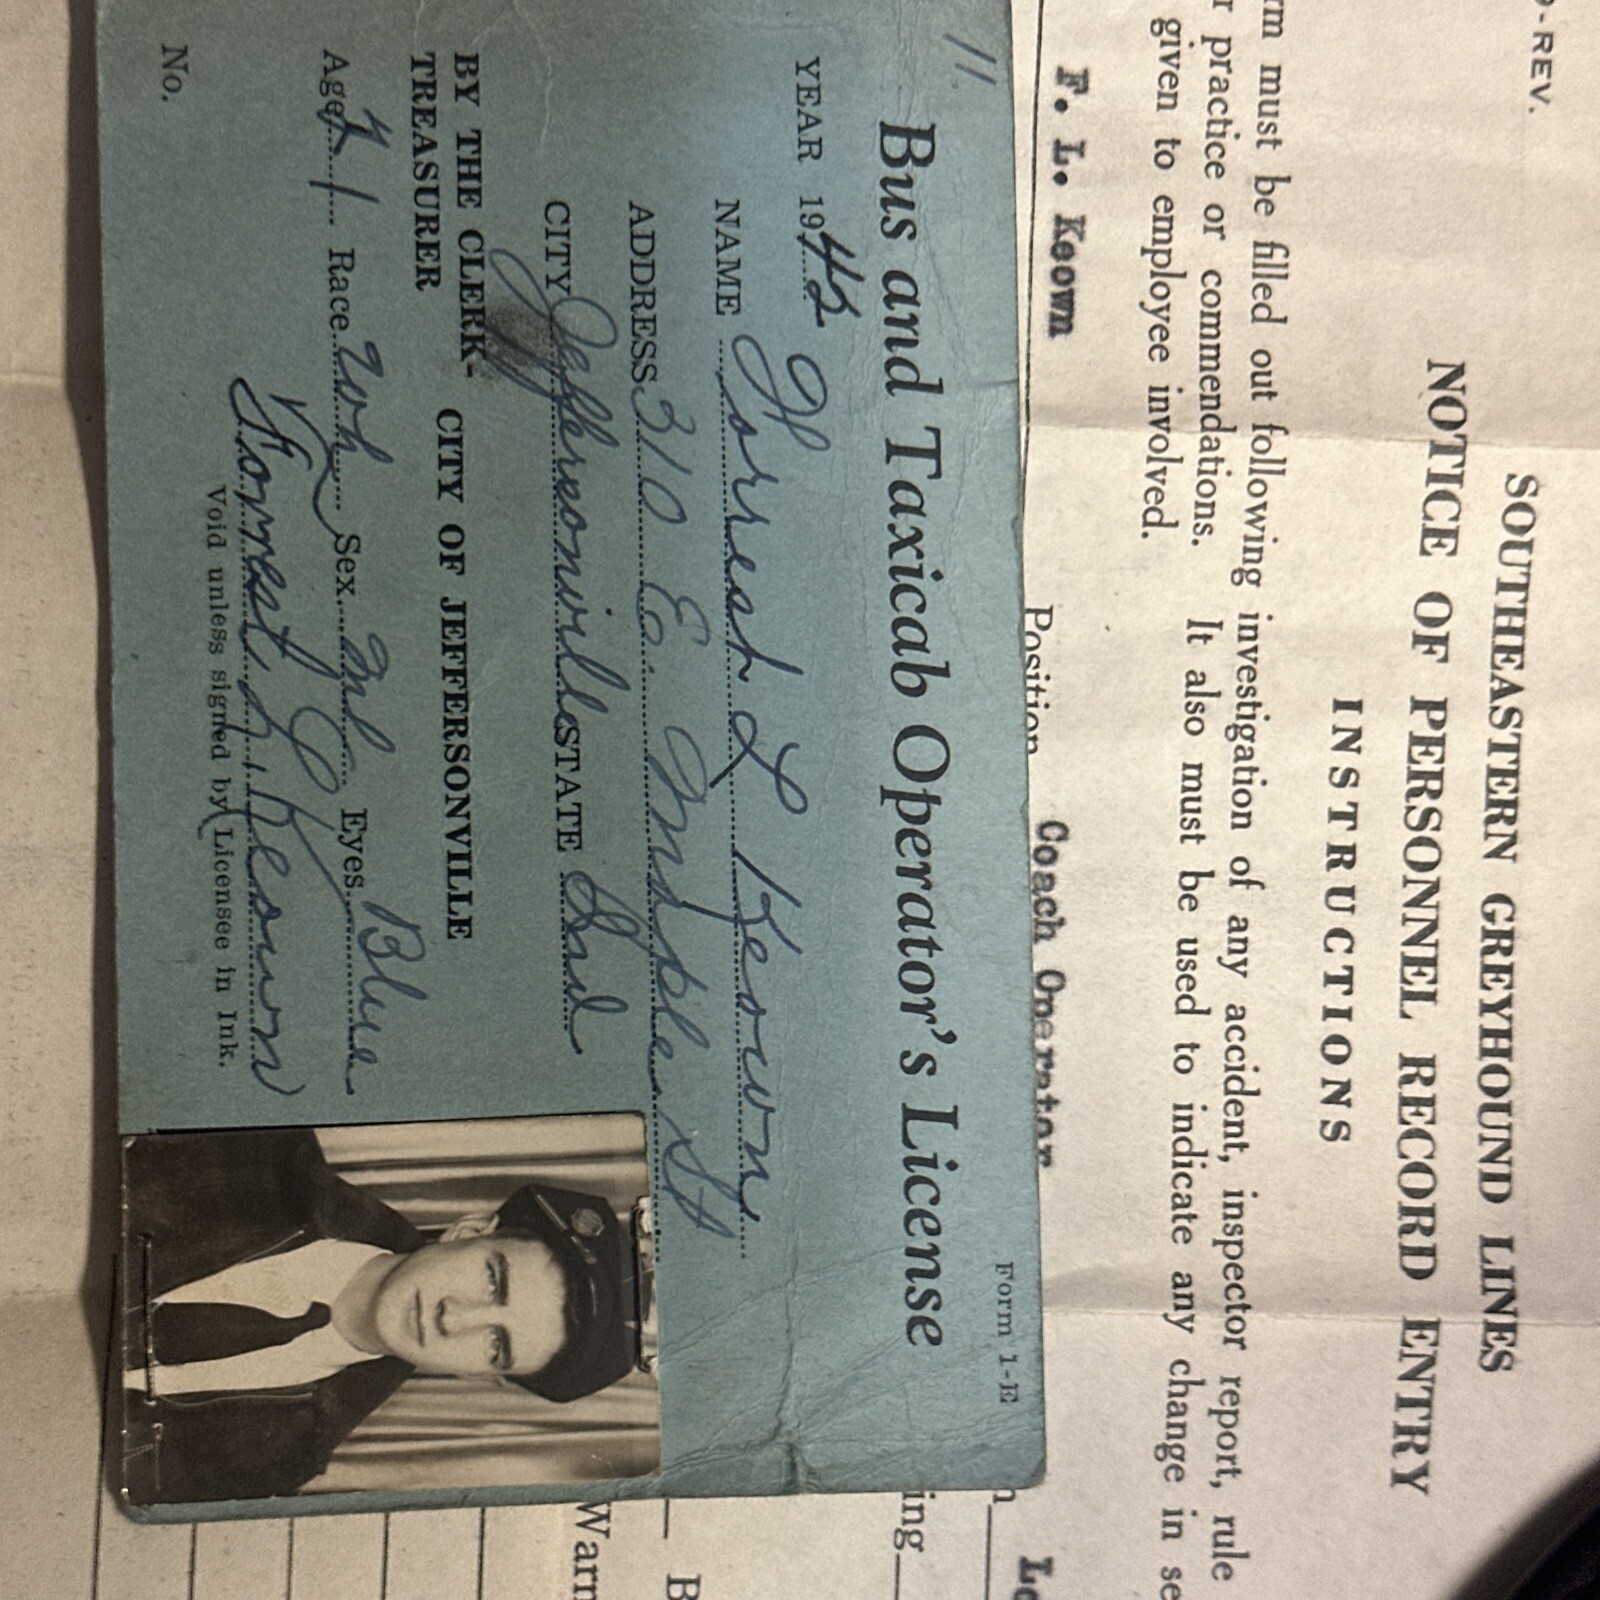 9-REV.
SOUTHEASTERN GREYHOUND LINES
NOTICE OF PERSONNEL RECORD ENTRY
INSTRUCTIONS
rm must be filled out following investigation of any accident, inspector report, rule
r practice or commendations. It also must be used to indicate any change in se
given to employee involved.
F. L. Keown Position Coach Operator Lo
11. Form 1-E
Bus and Taxicab Operator's License
YEAR 1942
NAME Forrest L Keown
ADDRESS 310 E. Maple St
CITY Jeffersonville STATE Ind
BY THE CLERK-
TREASURER CITY OF JEFFERSONVILLE
Age 21 Race Wh Sex Ml Eyes Blue
Forrest L. Keown
No. Void unless signed by Licensee in Ink.
ing
B
Warn